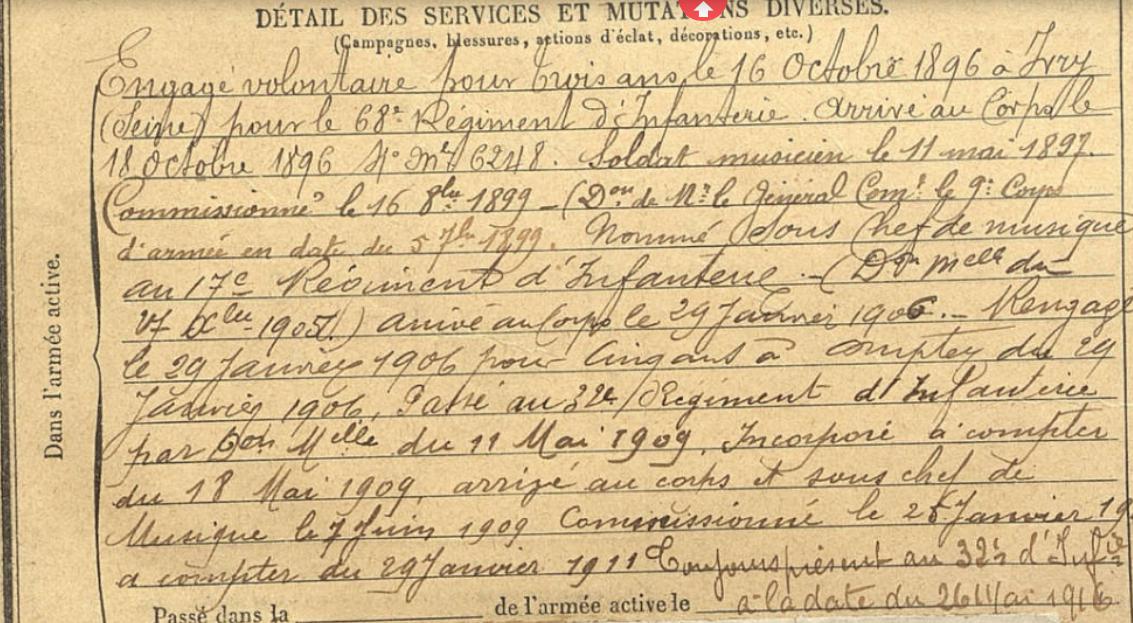 DÉTAIL DES SERVICES ET MUTATIONS DIVERSES.
(Campagnes, blessures, actions d'éclat, décorations, etc.)
Engagé volontaire pour trois ans le 16 Octobre 1896 à Ivry
(Seine) pour le 68e Régiment d'Infanterie. Arrivé au Corps le
18 Octobre 1896 No Mle 6248. Soldat musicien le 11 mai 1897.
Commissionné le 16 8bre 1899 – (Don de Mr le Général Comt le 9e Corps
d'armée en date du 5 7bre 1899. Nommé Sous Chef de musique
au 17e Régiment d'Infanterie. – (Don Melle du
Xbre 1905) arrivé au Corps le 29 Janvier 1906. – Rengagé
le 29 Janvier 1906 pour Cinq ans à compter du 29
Janvier 1906, Passé au 32e Régiment d'Infanterie
par Don Melle du 11 Mai 1909, Incorporé à compter
du 18 Mai 1909, arrivé au corps et sous chef de
Musique le 7 Juin 1909 Commissionné le Janvier 19
a compter du 29 Janvier 1911 Toujours présent au 32e d'Infie
à la date du 26 Mai 1916
Passé dans la de l'armée active le
Dans l'armée active.